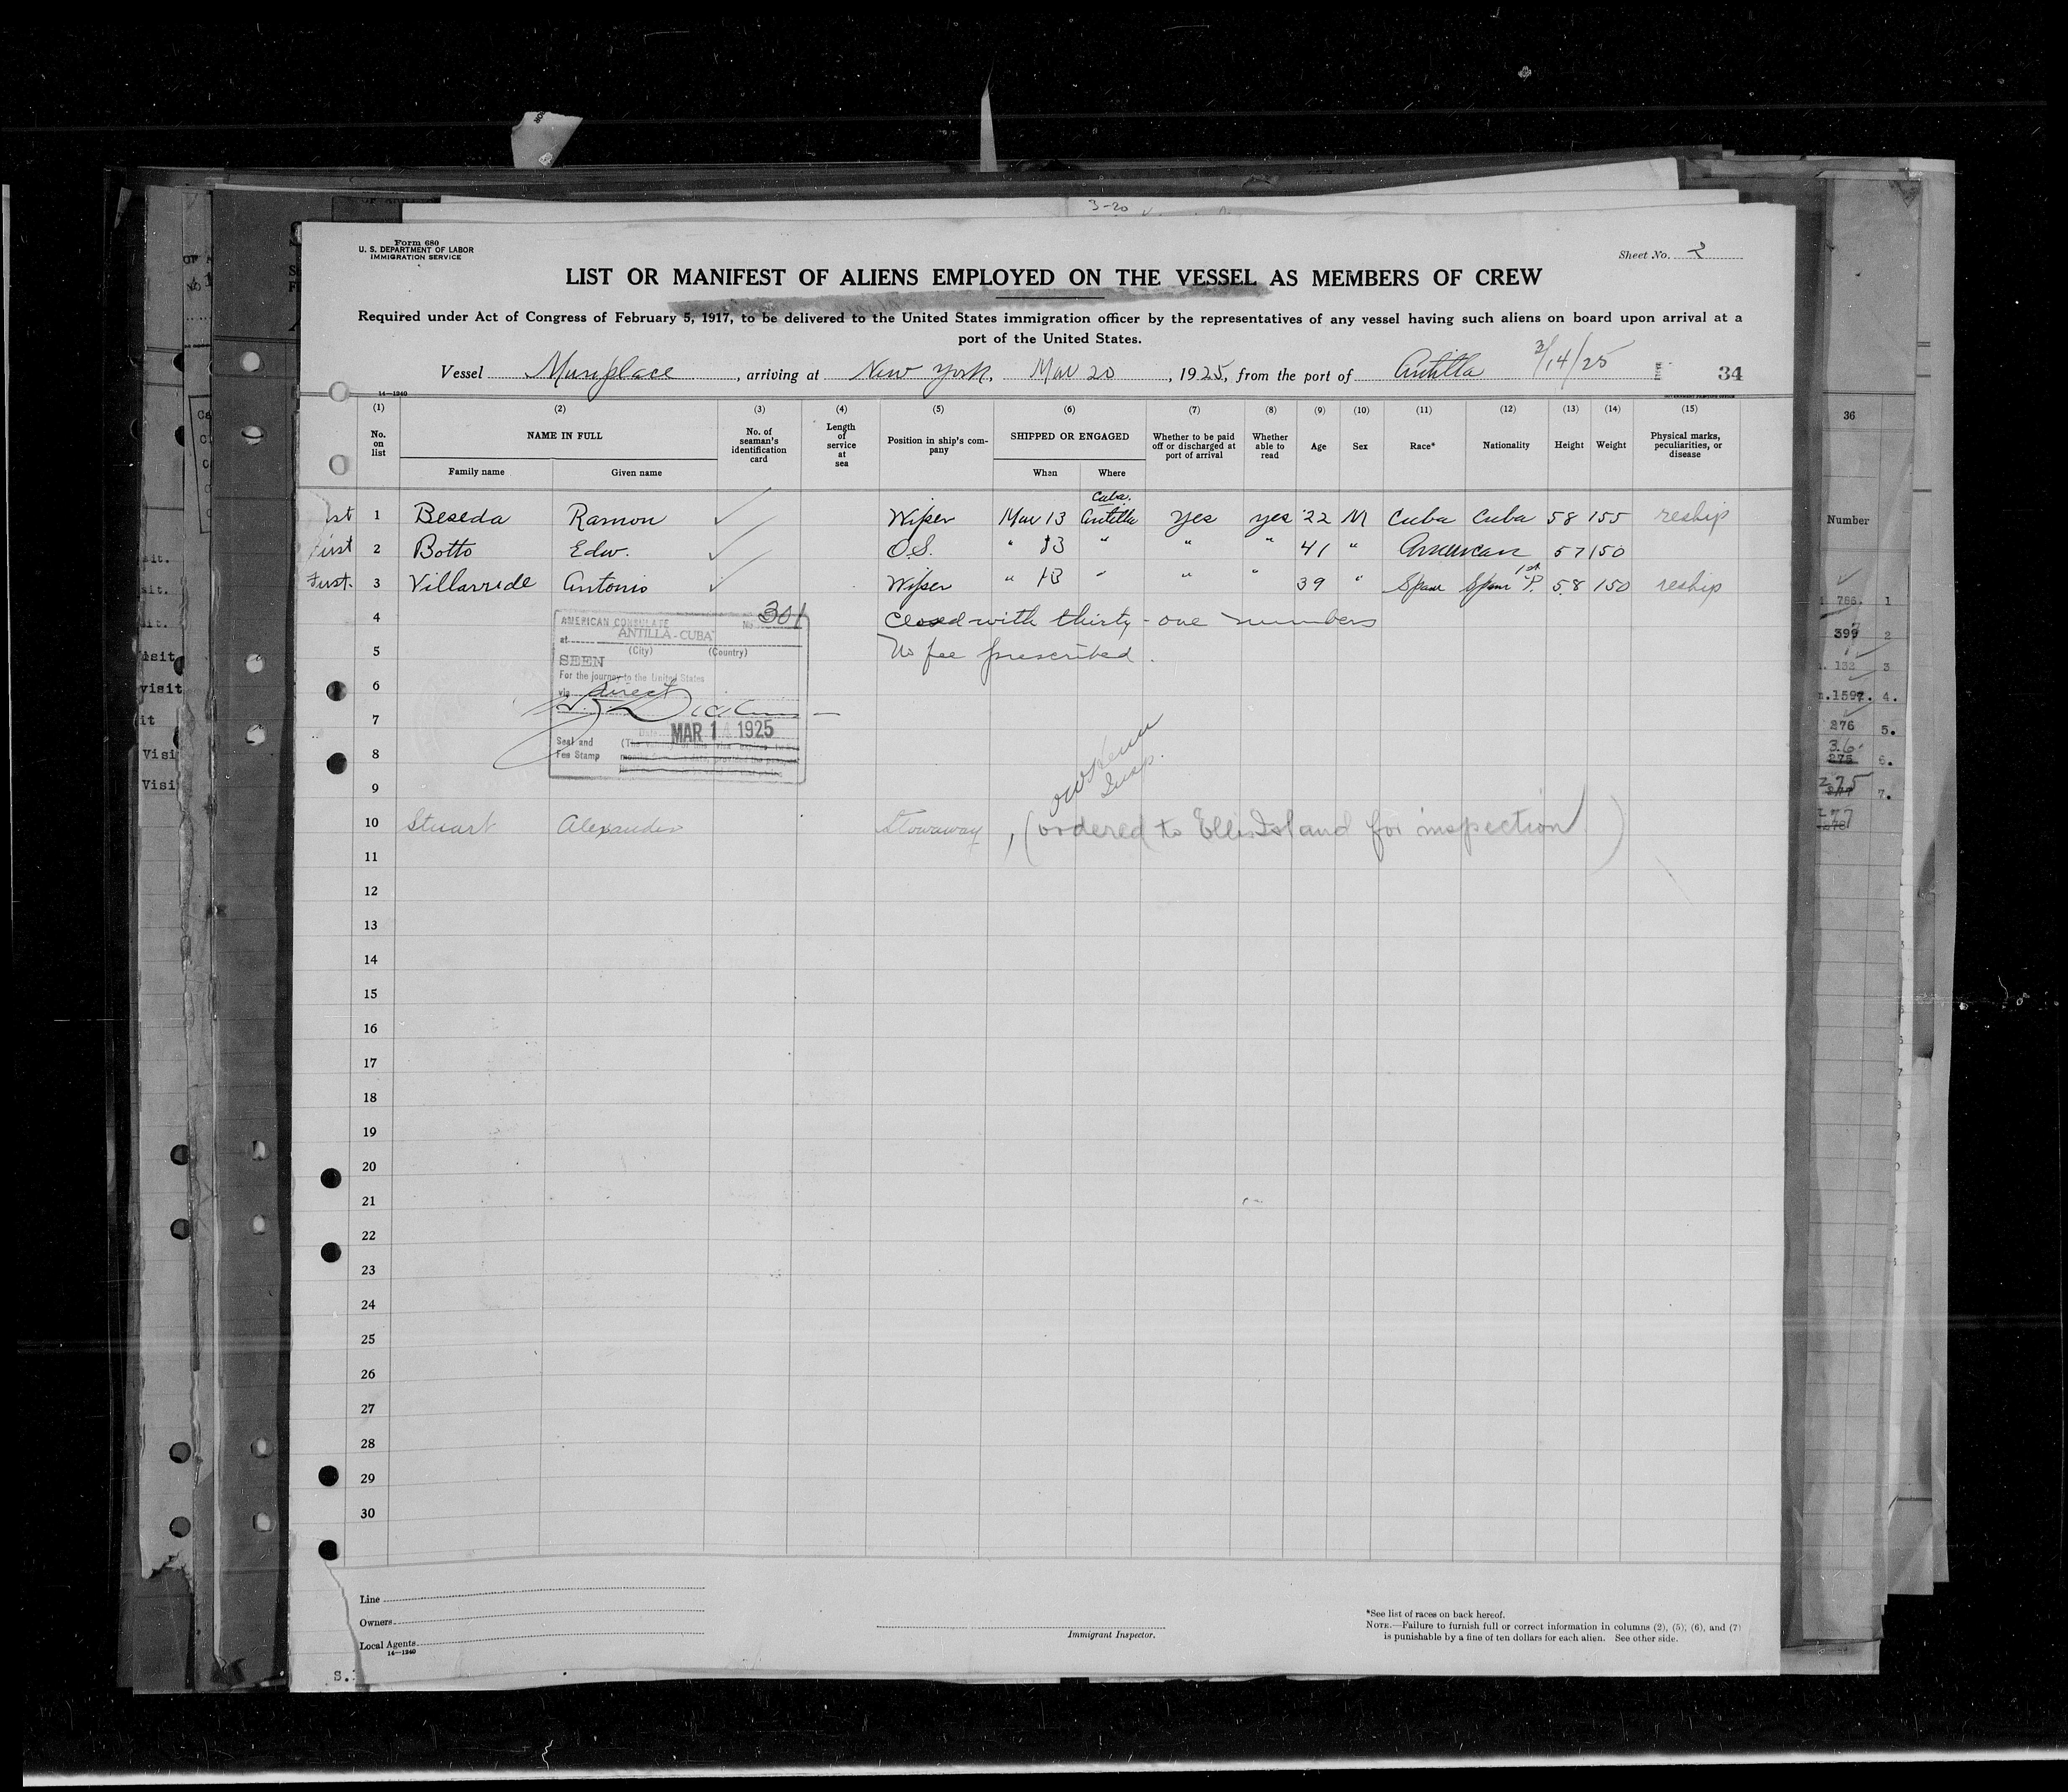 3-20
Form 680
U. S. DEPARTMENT OF LABOR
IMMIGRATION SERVICE
Sheet No. 2
LIST OR MANIFEST OF ALIENS EMPLOYED ON THE VESSEL AS MEMBERS OF CREW
Required under Act of Congress of February 5, 1917, to be delivered to the United States immigration officer by the representatives of any vessel having such aliens on board upon arrival at a
port of the United States.
Vessel Munplace, arriving at New York, Mar 20, 1925, from the port of Antilla 3/14/25
34
14—1240
(1) (2) (3) (4) (5) (6) (7) (8) (9) (10) (11) (12) (13) (14) (15)
No. on list NAME IN FULL No. of seaman's identification card Length of service at sea Position in ship's company SHIPPED OR ENGAGED Whether to be paid off or discharged at port of arrival Whether able to read Age Sex Race* Nationality Height Weight Physical marks, peculiarities, or disease
Family name Given name When Where
Cuba.
1st 1 Beseda Ramon Wiper Mar 13 Antilla yes yes 22 M Cuba Cuba 58 155 reship
First 2 Botto Edw. O.S. " 13 " " " 41 " American 57 150
1st
First. 3 Villarride Antonio Wiper " 13 " " " 39 " Spain Spain P. 58 150 reship
4 Closed with thirty-one numbers
5 No fee prescribed.
AMERICAN CONSULATE No 301
at ANTILLA-CUBA
(City) (Country)
SEEN
For the journey to the United States
via direct
Date MAR 14 1925
Seal and
Fee Stamp
6
7
8
Insp.
9
10 Stuart Alexander Stowaway, (ordered to Ellis Island for inspection)
11
12
13
14
15
16
17
18
19
20
21
22
23
24
25
26
27
28
29
30
Line
Owners
Local Agents
14—1240
Immigrant Inspector.
*See list of races on back hereof.
NOTE.—Failure to furnish full or correct information in columns (2), (5), (6), and (7)
is punishable by a fine of ten dollars for each alien. See other side.
36
Number
786. 1
399 2
132 3
1597. 4.
276 5.
36
6.
275
7.
277
visit
it
Visi
Visi
S.